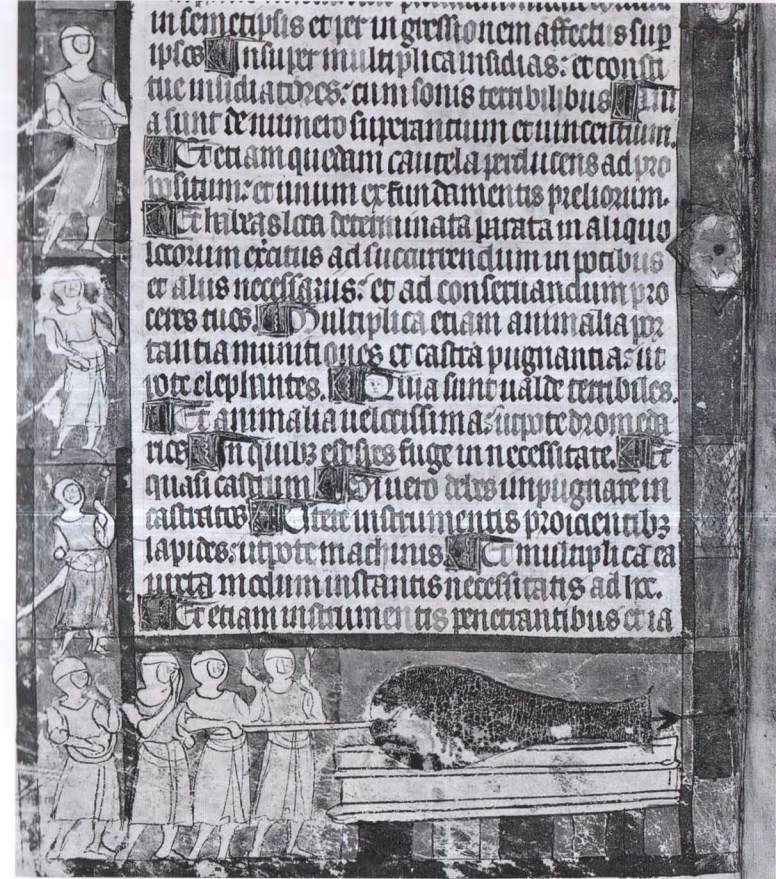 in semetipsis et per ingressionem affectus sup
ipsos Insuper multiplica insidias: et consti
tue insidiatores: cum sonis terribilibus
a sunt de numero superantium et uincentium.
Et etiam quedam cautela perducens ad pro
positum: et unum ex fundamentis preliorum.
Et habeas loca determinata parata in aliquo
locorum exercitus ad succurrendum in potibus
et aliis necessariis: et ad conseruandum pro
ceres tuos. Multiplica etiam animalia por
tantia munitiones et castra pugnantia: ut
pote elephantes. Quia sunt ualde terribiles.
Et animalia uelocissima: utpote dromeda
rios In quibus fuge in necessitate. Et
quasi castrum Si uero debes inpugnare in
castrites Utere instrumentis proicientibꝫ
lapides: utpote machinis Et multiplica ea
iuxta modum instantis necessitatis ad hoc.
Et etiam instrumentis penetrantibus et ia